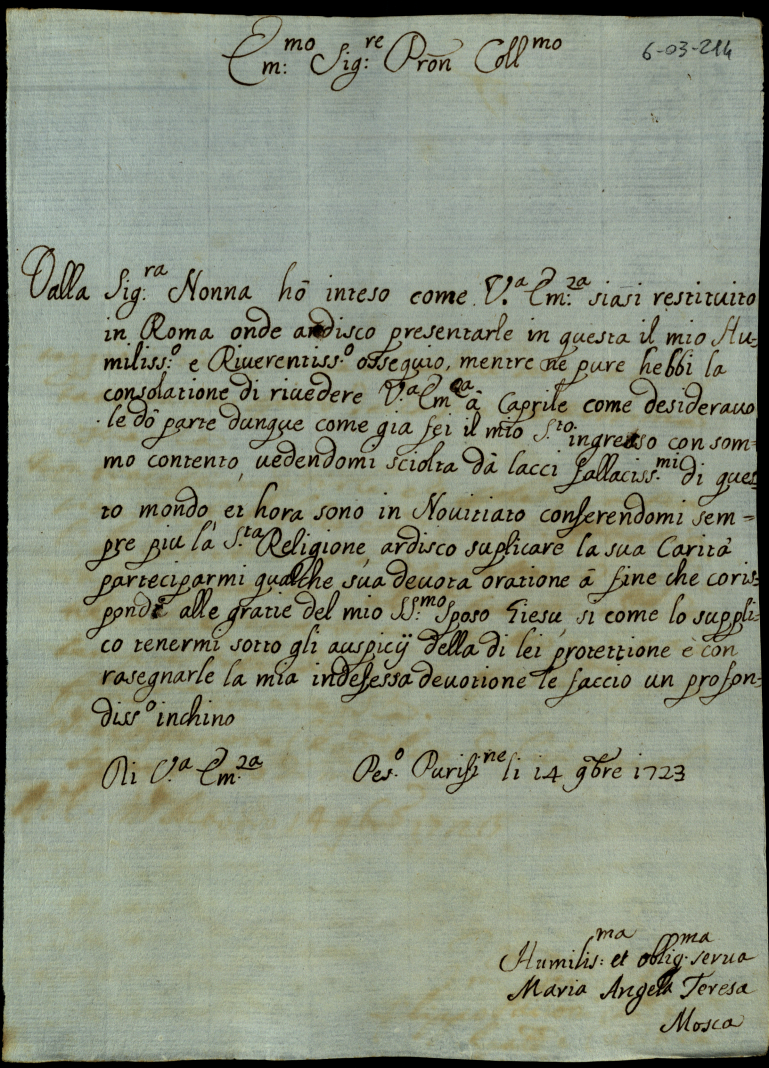 6-03-214
Em:mo Sig:re Prōn Collmo
Dalla Sig:ra Nonna hò inteso come V.a Em:za siasi restituito
in Roma onde ardisco presentarle in questa il mio Hu=
miliss:o e Riuerentiss:o ossequio, mentre nè pure hebbi la
consolatione di riuedere V.a Em:za à Caprile come desiderauo
le dò parte dunque come gia fei il mio S.to ingresso con som=
mo contento, uedendomi sciolta dà lacci fallaciss:mi di ques=
to mondo, et hora sono in Nouitiato conferendomi sem=
pre piu la S.ta Religione, ardisco suplicare la sua Carità
parteciparmi qualche sua deuota oratione à fine che coris=
ponde alle gratie del mio SS:mo Sposo Giesu, si come lo suppli=
co tenermi sotto gli auspicij della di lei protettione e con
rasegnarle la mia indefessa deuotione le faccio un profon=
diss:o inchino
Di V.a Em:za Pes:o Purifi:ne li 14 9bre 1723
Humilis:ma et oblig:ma serua
Maria Angela Teresa
Mosca